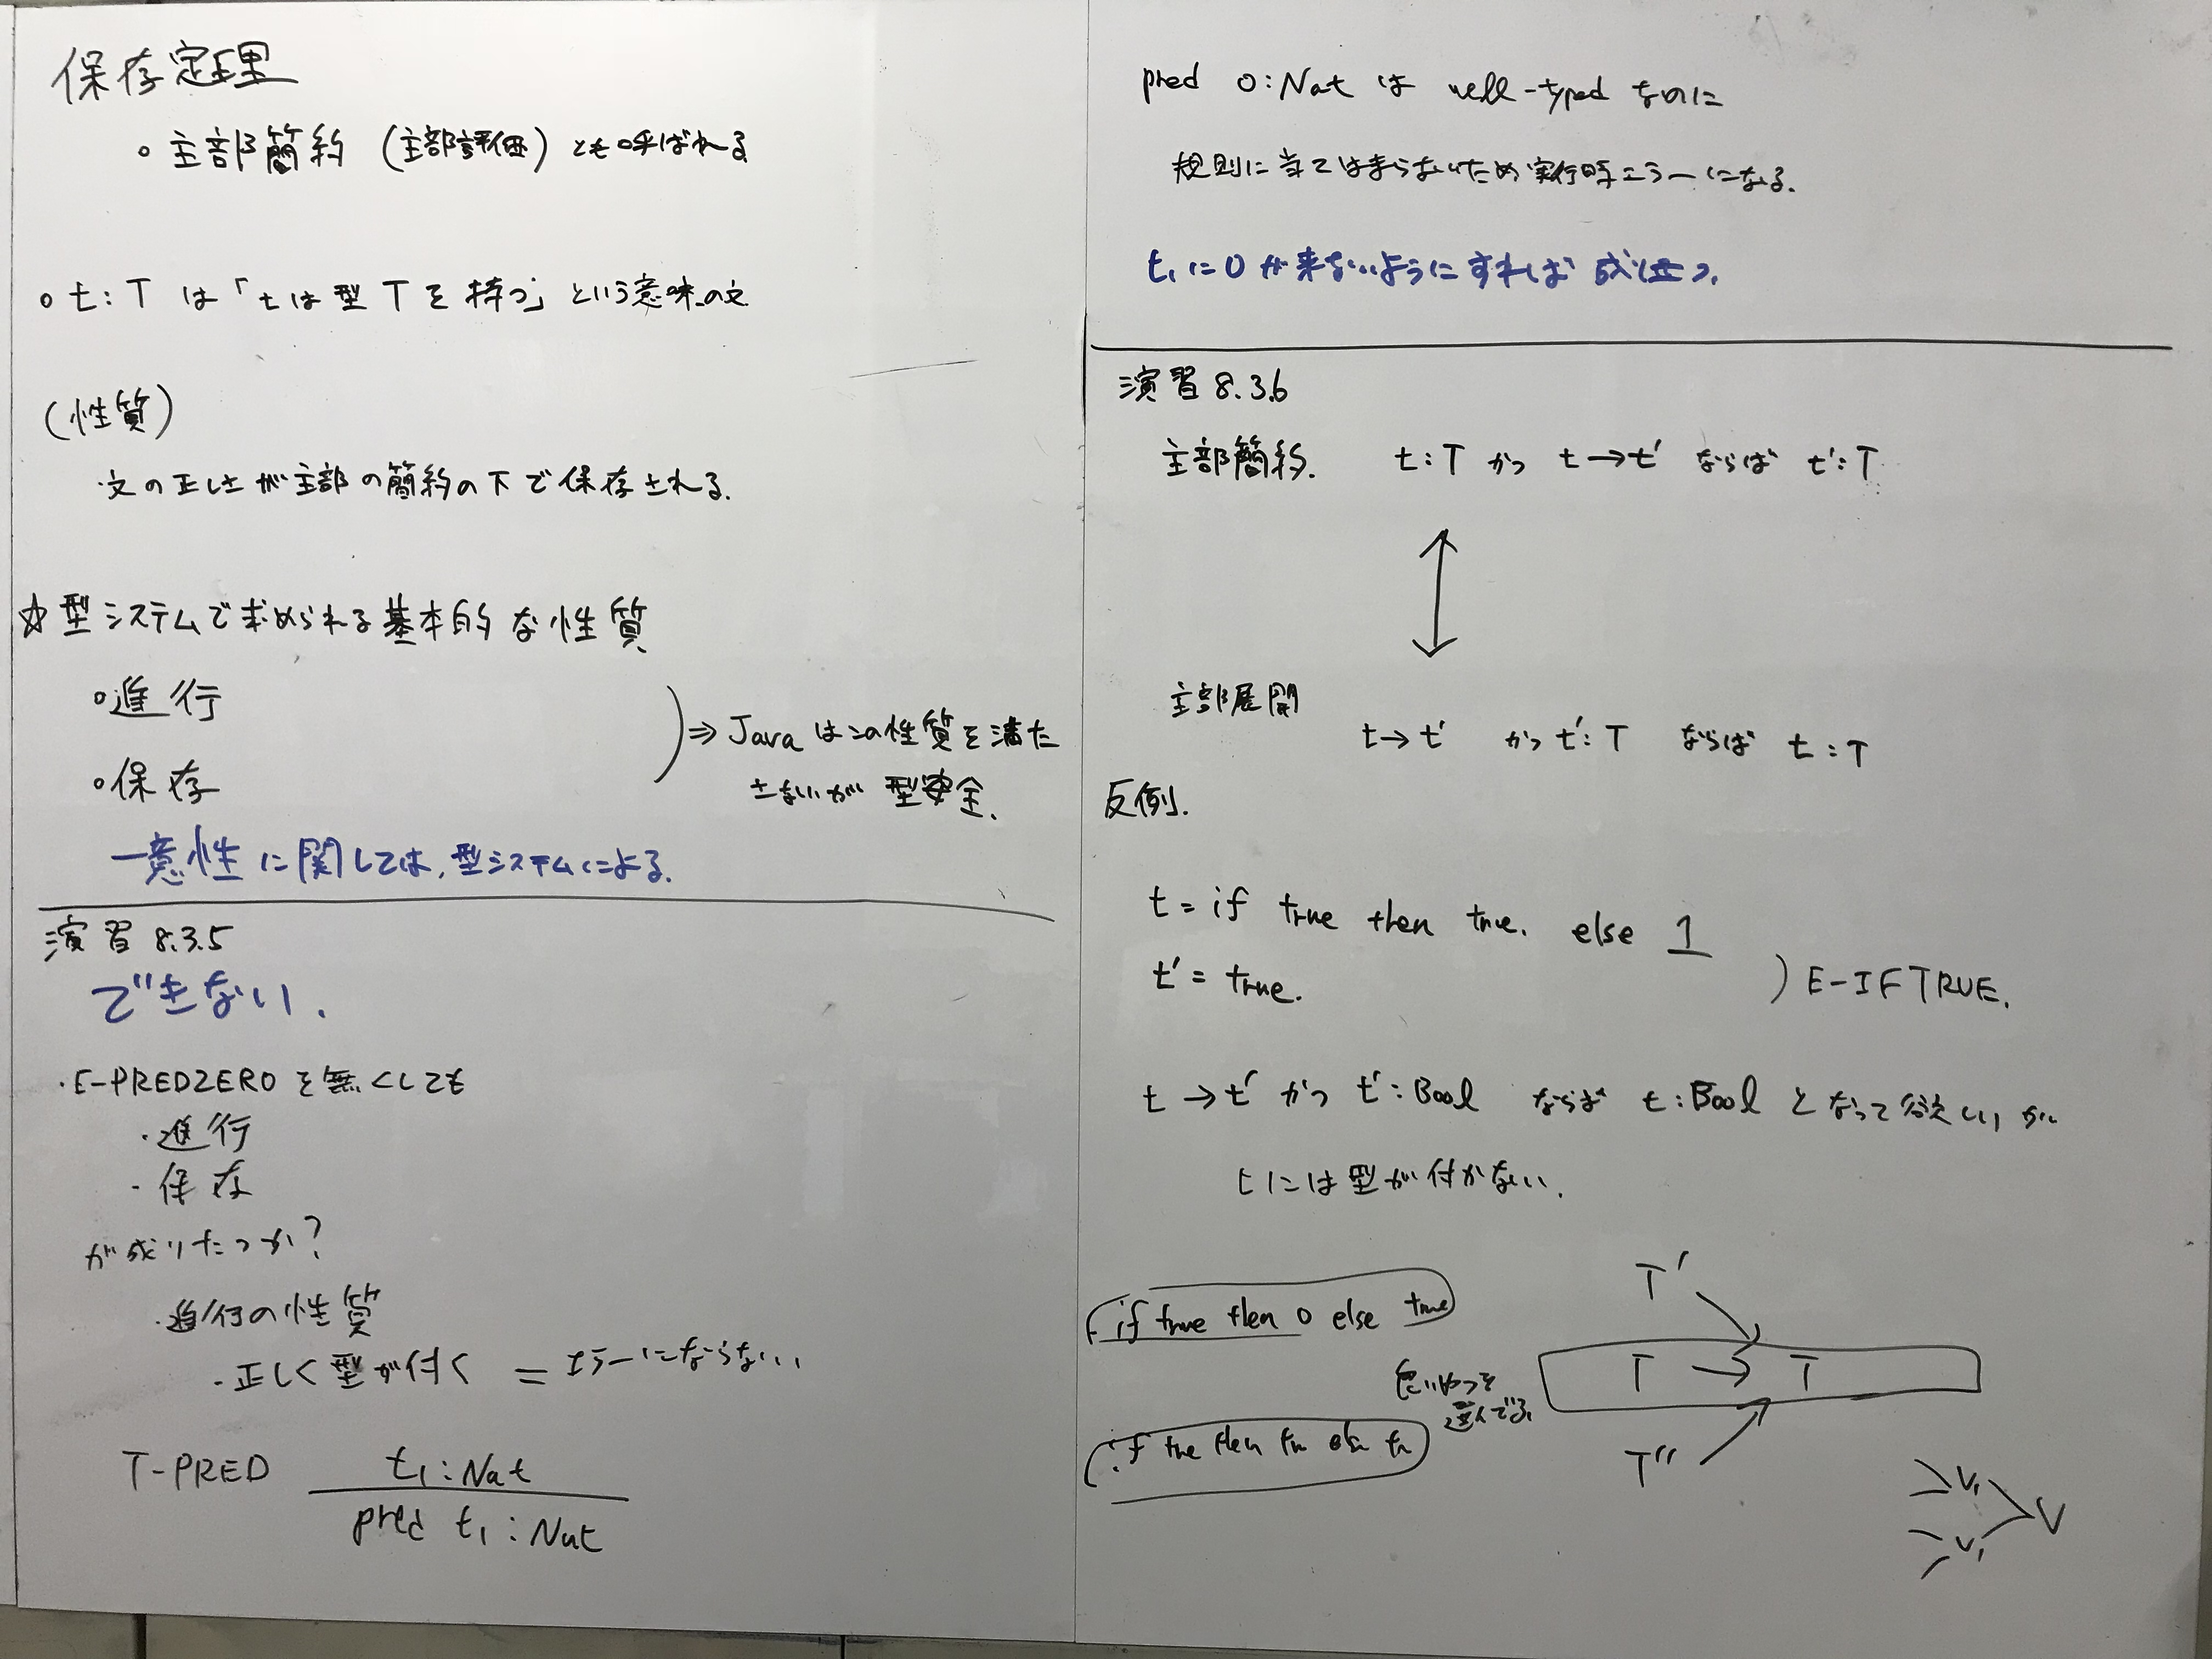 保存定理
○ 主部簡約 (主部評価) とも呼ばれる
○ t: T は 「tは型Tを持つ」 という意味の文
(性質)
・文の正しさが主部の簡約の下で保存される.
☆型システムで求められる基本的な性質
○進行
○保存
⇒ Javaはこの性質を満た
さないが 型安全.
一意性に関しては, 型システムによる.
演習 8.3.5
できない.
・E-PREDZERO を無くしても
・進行
・保存
が成りたつか?
・進行の性質
・正しく型が付く = エラーにならない
T-PRED
t₁: Nat
pred t₁: Nat
pred 0: Nat は well-typed なのに
規則に当てはまらないため実行時エラーになる.
t₁に0が来ないようにすれば 成り立つ.
演習 8.3.6
主部簡約. t: T かつ t→t' ならば t': T
主部展開
t→t' かつ t': T ならば t: T
反例.
t = if true then true. else 1
t' = true.
) E-IFTRUE.
t → t' かつ t': Bool ならば t: Bool となって欲しいが
tには型が付かない.
if true then 0 else true
T'
T → T
T''
選んでる
if true then true else tr
V₁
V
V₁